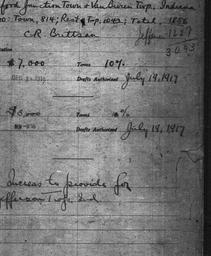 ford Junction Town & Van Buren Twp, Indiana
Town, 814; Rest Twp, 1042; Total, 1856
C. R. Brittson
Jefferson 1237
3093
$7,000 Taxes 10%
Drafts Authorized July 19, 1917
$3,000 Taxes %
Drafts Authorized July 19, 1917
Increase to provide for
Jefferson Twp, Ind